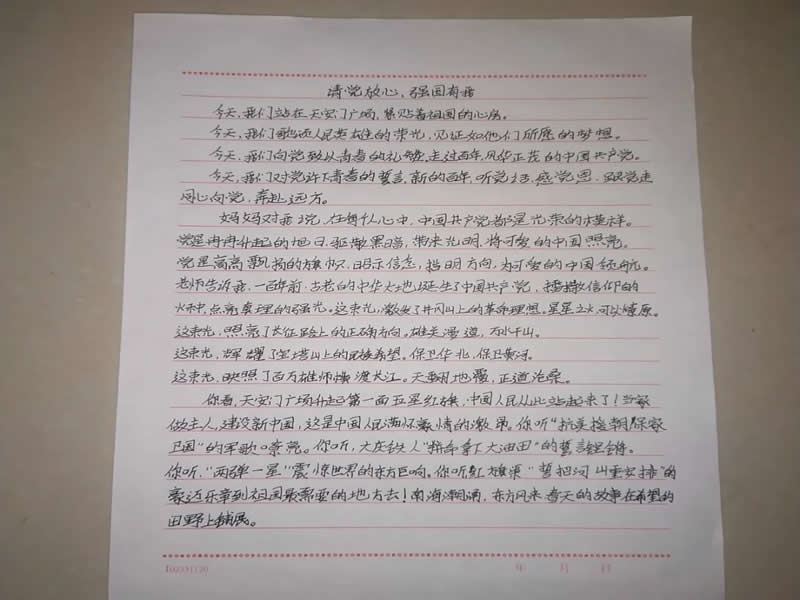 请党放心、强国有我
今天,我们站在天安门广场,紧贴着祖国的心房。
今天,我们歌颂人民英雄的荣光,见证如他们所愿的梦想。
今天,我们向党致以青春的礼赞,走过百年,风华正茂的中国共产党。
今天,我们对党许下青春的誓言,新的百年,听党话,感党恩,跟党走
同心向党,奔赴远方。
妈妈对我说,在每个人心中,中国共产党都是光荣的模样。
党是冉冉升起的旭日,驱散黑暗,带来光明,将可爱的中国照亮。
党是高高飘扬的旗帜,昭示信念,指明方向,为可爱的中国领航。
老师告诉我,一百年前,古老的中华大地诞生了中国共产党,播撒信仰的
火种,点亮真理的强光。这束光,激发了井冈山上的革命理想。星星之火,可以燎原。
这束光,照亮了长征路上的正确方向。雄关漫道,万水千山。
这束光,辉耀了宝塔山上的民族希望。保卫华北,保卫黄河。
这束光,映照了百万雄师横渡大江。天翻地覆,正道沧桑。
你看,天安门广场升起第一面五星红旗,中国人民从此站起来了!当家
做主人,建设新中国,这是中国人民满怀豪情的激昂。你听"抗美援朝,保家
卫国"的军歌嘹亮。你听,大庆铁人"拼命拿下大油田"的誓言铿锵。
你听,"两弹一星"震惊世界的东方巨响。你听,红旗渠"誓把河山重安排"的
豪迈乐章到祖国最需要的地方去!南海潮涌,东方风来,春天的故事在希望的
田野上铺展。
年 月 日